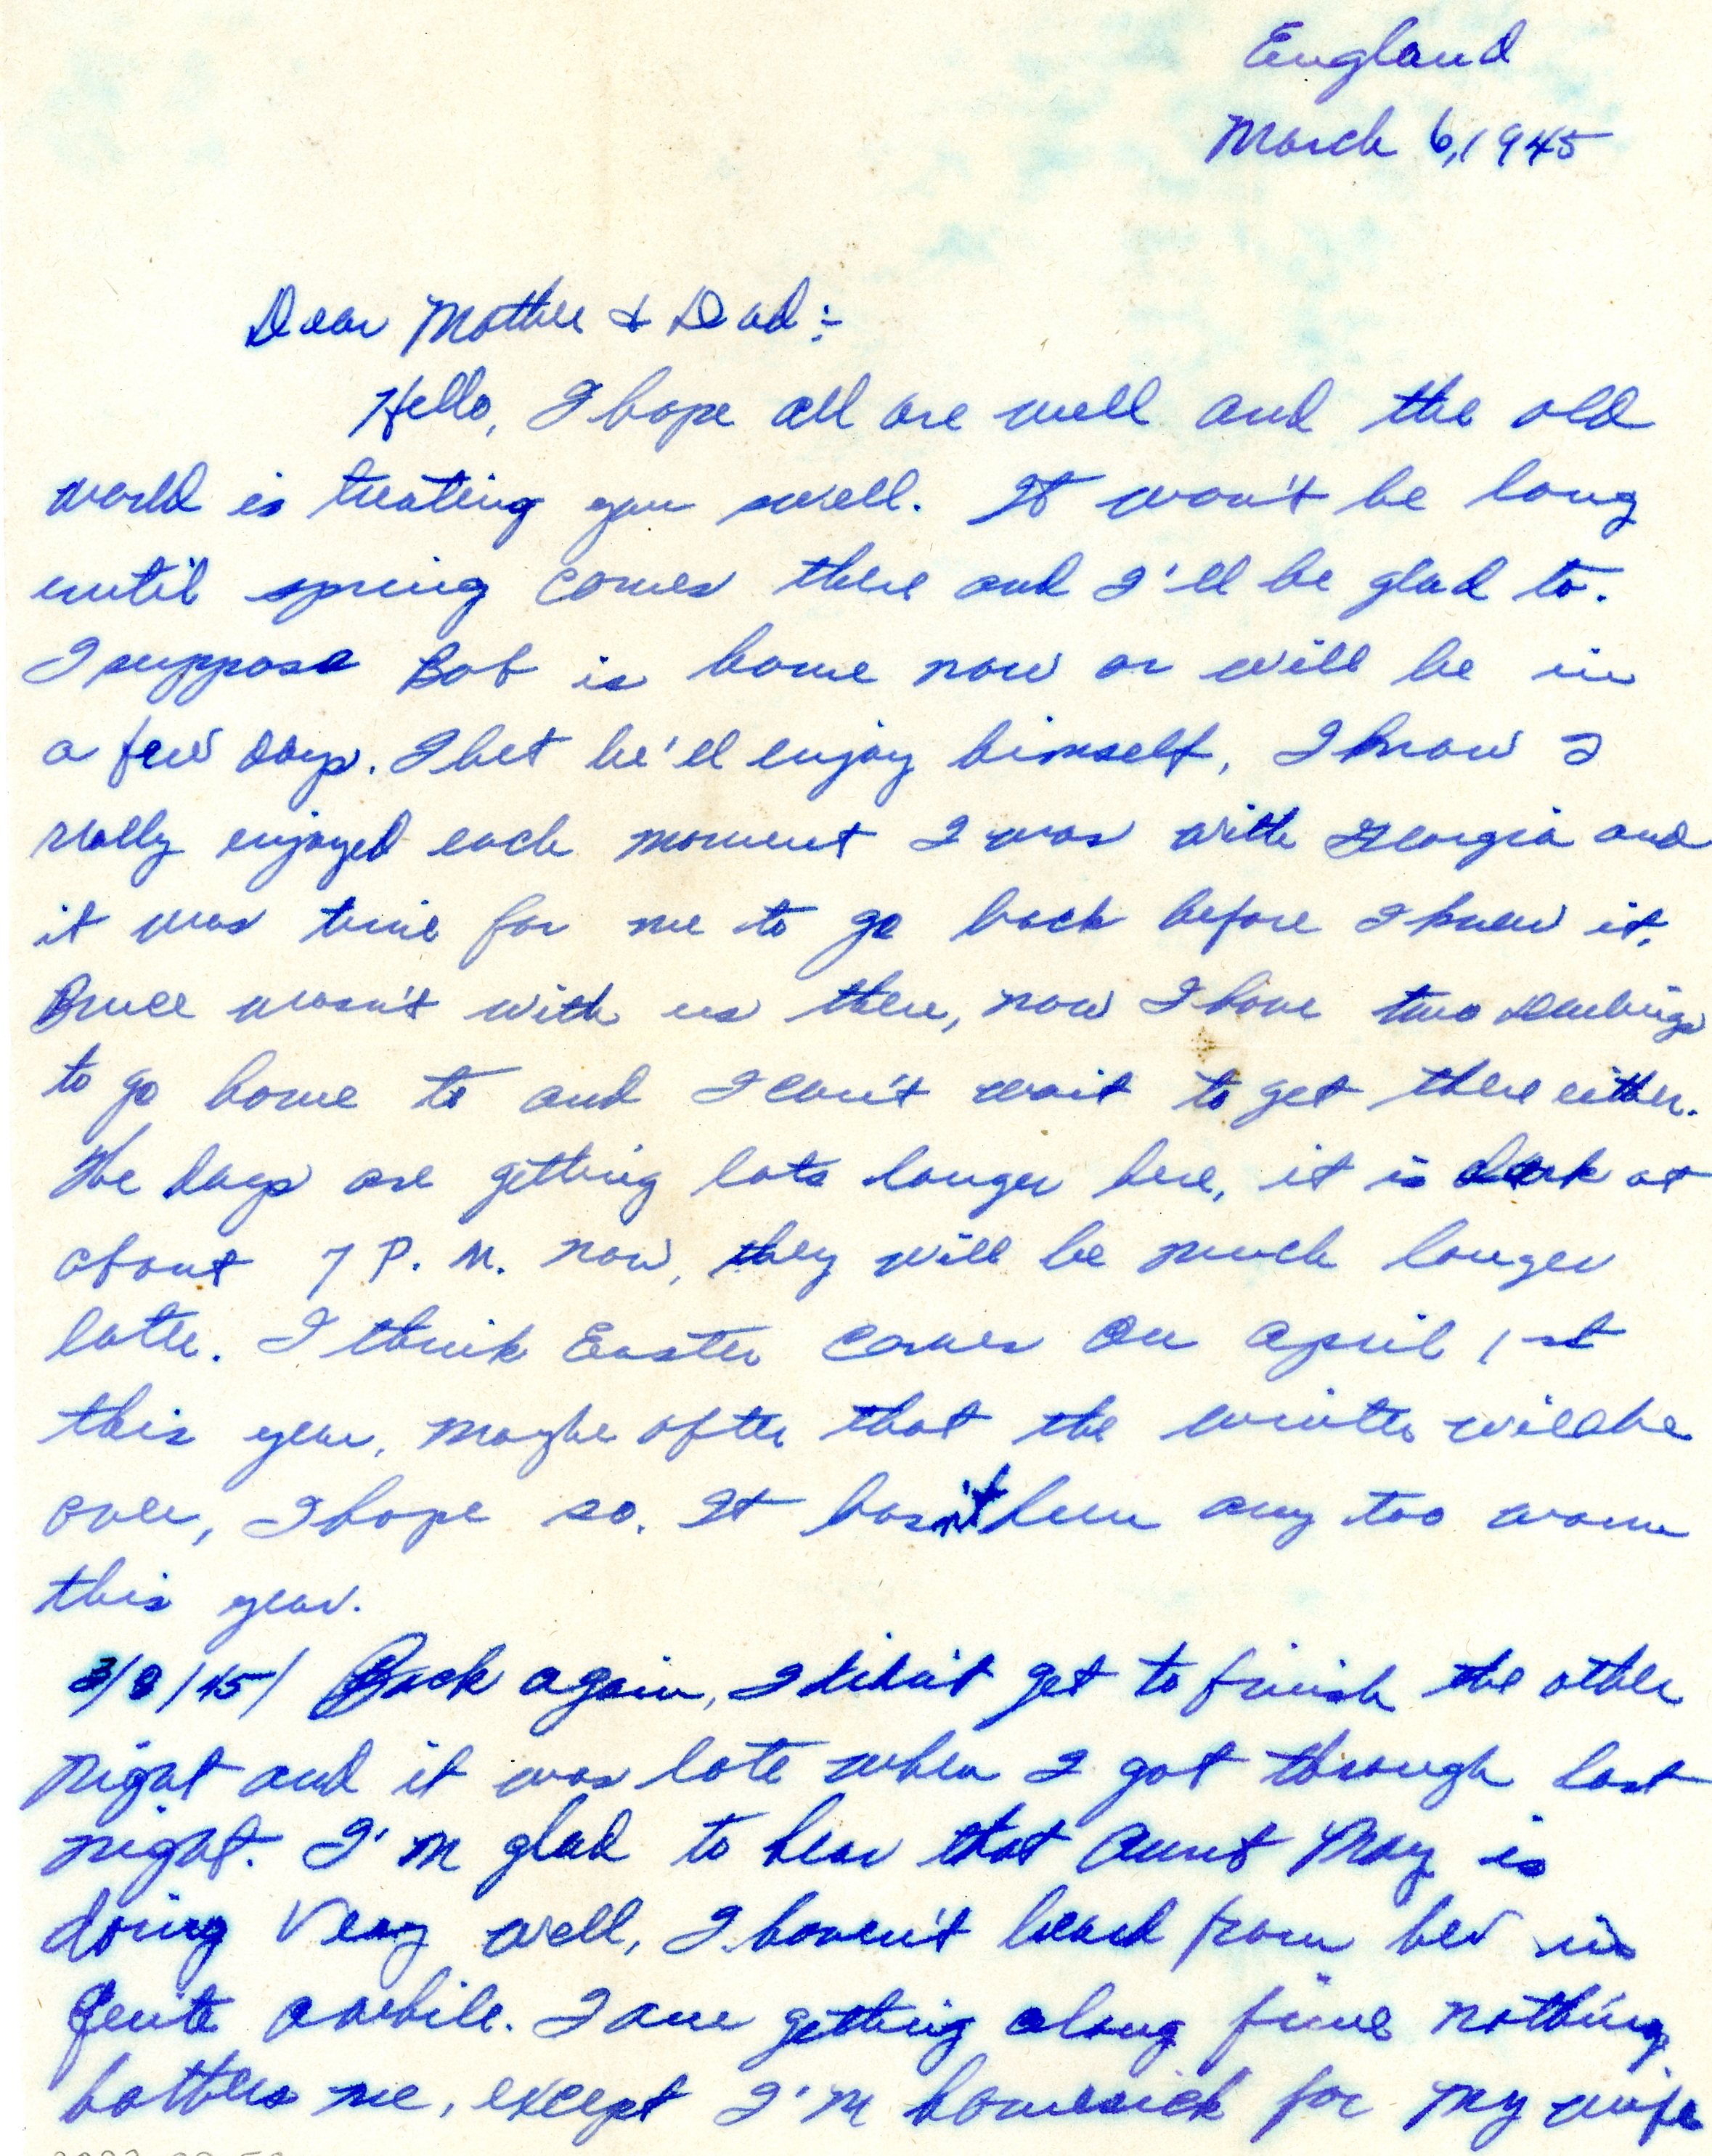 England
March 6, 1945
Dear Mother & Dad:-
Hello, I hope all are well and the old
world is treating you swell. It won't be long
until spring comes there and I'll be glad to.
I suppose Bob is home now or will be in
a few days. I bet he'll enjoy himself, I know I
really enjoyed each moment I was with Georgia and
it was time for me to go back before I knew it.
Bruce wasn't with us then, now I have two darlings
to go home to and I can't wait to get there either.
The days are getting lots longer here, it is dark at
about 7 P. M. now, they will be much longer
later. I think Easter comes on April 1st
this year, maybe after that the winter will be
over, I hope so. It hasn't been any too warm
this year.
3/8/45/ Back again, I didn't get to finish the other
night and it was late when I got through last
night. I'm glad to hear that Aunt May is
doing very well, I haven't heard from her in
quite awhile. I am getting along fine nothing
bothers me, except I'm homesick for my wife